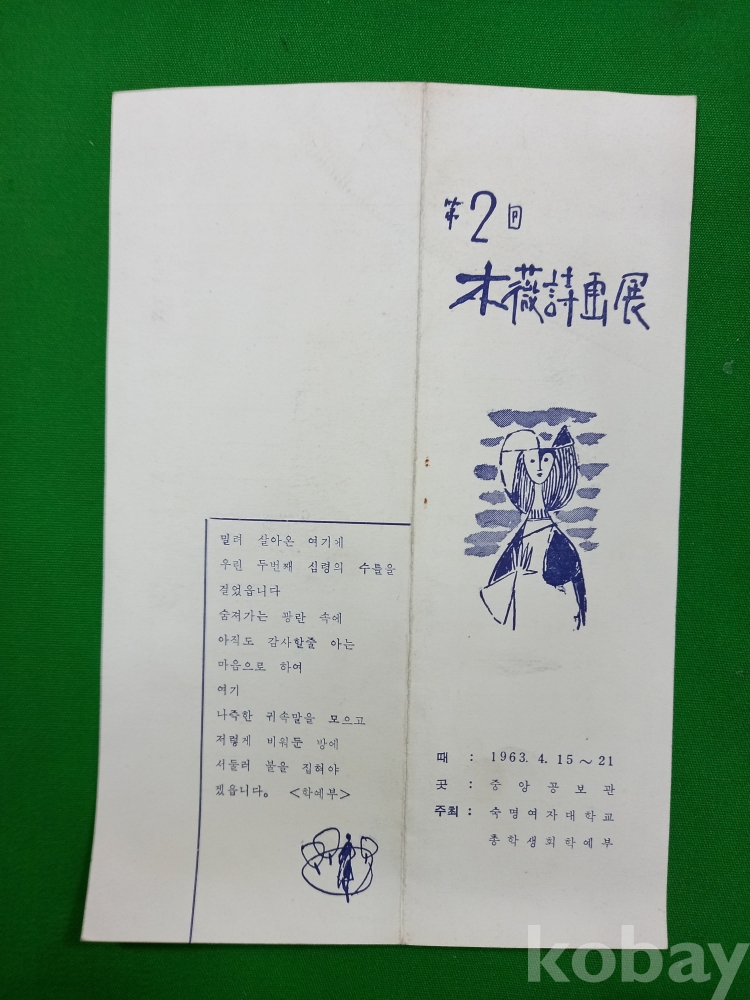 第2回
木薇詩画展
때 : 1963. 4. 15 ~ 21
곳 : 중앙공보관
주최 : 숙명여자대학교
총학생회학예부
밀려 살아온 여기게
우린 두번째 심령의 수틀을
걸었읍니다
숨져가는 광란 속에
아직도 감사할줄 아는
마음으로 하여
여기
나즉한 귀속말을 모으고
저렇게 비워둔 방에
서둘러 불을 집혀야
겠읍니다. <학예부>
kobay